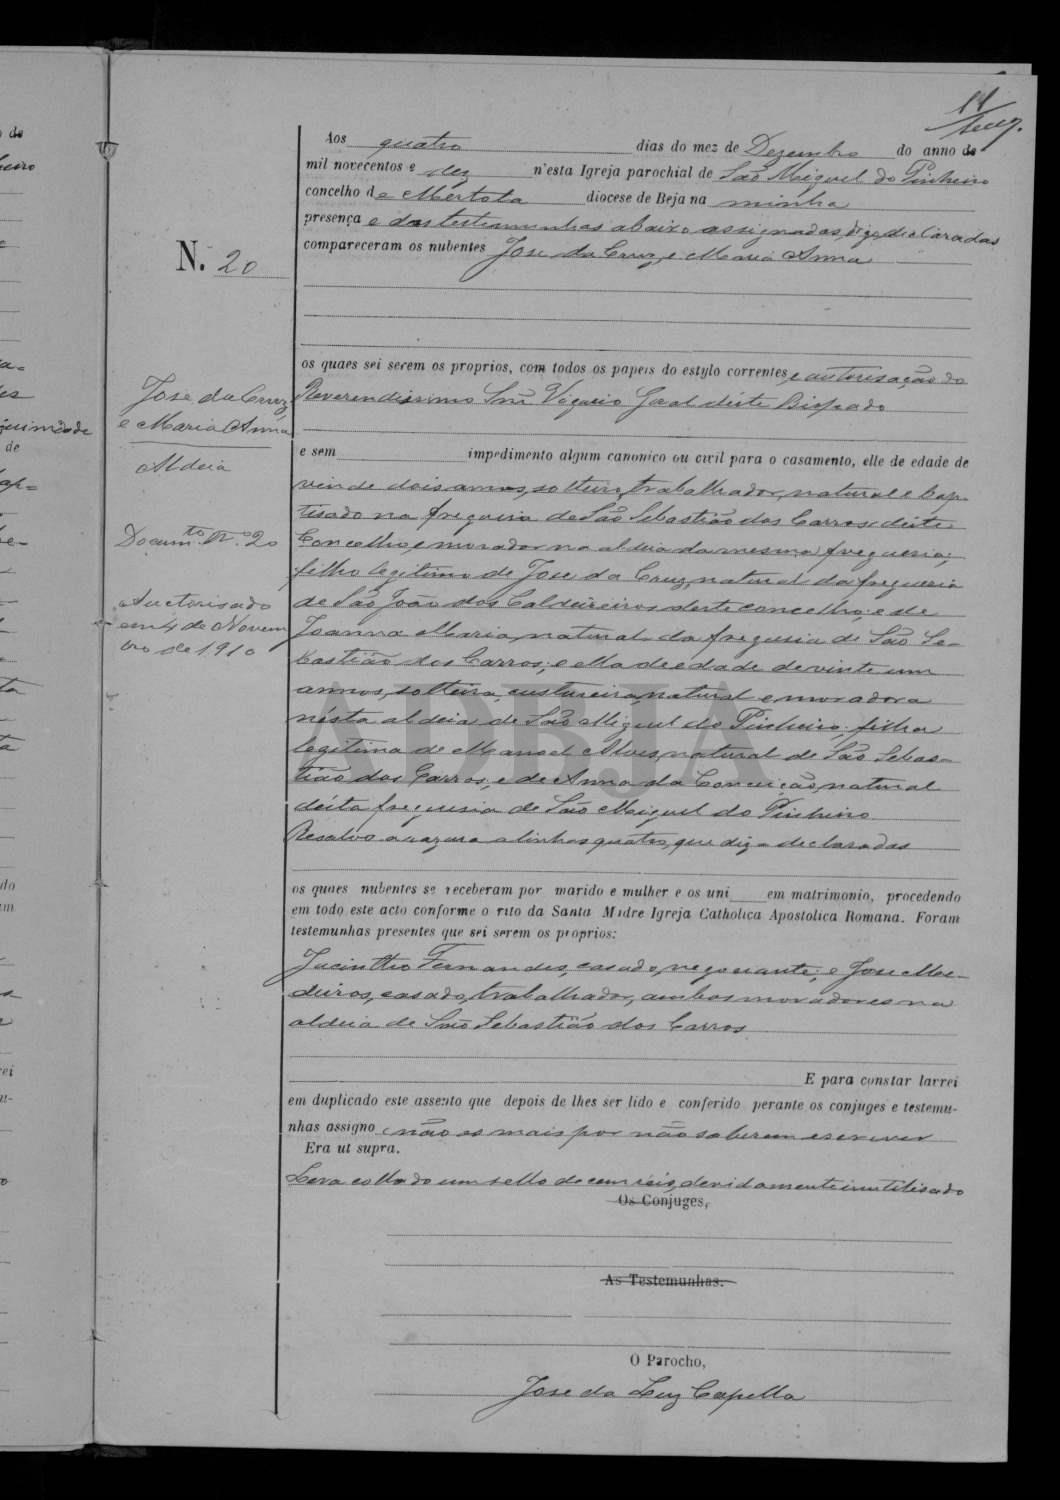 11
Aos quatro dias do mez de Dezembro do anno de
mil novecentos e dez n'esta Igreja parochial de São Miguel do Pinheiro
concelho de Mertola diocese de Beja na minha
presença e das testemunhas abaixo assignadas, digo, declaradas
compareceram os nubentes Jose da Cruz e Maria Anna
N. 20
os quaes sei serem os proprios, com todos os papeis do estylo correntes e autorisação do
Reverendissimo Snr Vigario Geral déste Bispado
Jose da Cruz
e Maria Anna
Aldeia
Documto. No. 20
Auctorisado
em 4 de Novem
bro de 1910
e sem impedimento algum canonico ou civil para o casamento, elle de edade de
vinde dois annos, solteiro, trabalhador, natural e bap-
tisado na freguesia de São Sebastião dos Carros déste
Concelho, e morador na aldeia da mesma freguesia;
filho legitimo de Jose da Cruz, natural da freguesia
de São João dos Caldeireiros deste concelho, e de
Joanna Maria, natural da freguesia de São Se-
bastião dos Carros; e ella de edade de vinte um
annos, solteira, custureira, natural e moradora
nésta aldeia de São Miguel do Pinheiro, filha
legitima de Manoel Alves, natural de São Sebas-
tião dos Carros, e de Anna da Conceição, natural
désta freguesia de São Miguel do Pinheiro
Resalvo a razura a linhas quatro, que diz = declaradas
os quaes nubentes se receberam por marido e mulher e os uni em matrimonio, procedendo
em todo este acto conforme o rito da Santa Madre Igreja Catholica Apostolica Romana. Foram
testemunhas presentes que sei serem os proprios:
Jacintho Fernandes, casado, negociante; e Jose Me-
deiros, casado, trabalhador, ambos moradores na
aldeia de São Sebastião dos Carros
E para constar lavrei
em duplicado este assento que depois de lhes ser lido e conferido perante os conjuges e testemu-
nhas assigno, não os mais por não saberem escrever
Era ut supra.
Leva collado um sello de cem réis, devidamente inutilisado
Os Conjuges,
As Testemunhas.
O Parocho,
Jose da Luz Capella
ADBJA